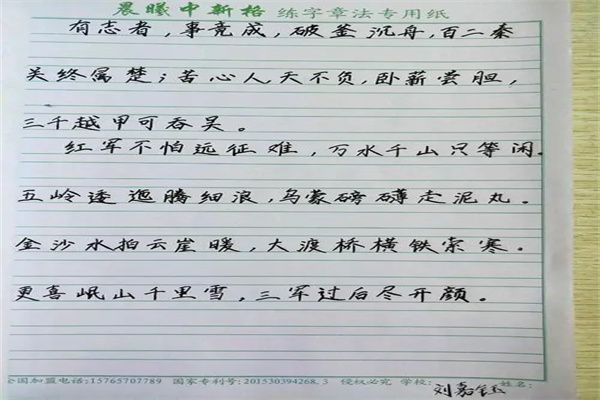 晨曦中新格 练字章法专用纸
有志者，事竟成，破釜沉舟，百二秦
关终属楚；苦心人天不负，卧薪尝胆，
三千越甲可吞吴。
红军不怕远征难，万水千山只等闲.
五岭逶迤腾细浪，乌蒙磅礴走泥丸。
金沙水拍云崖暖，大渡桥横铁索寒。
更喜岷山千里雪，三军过后尽开颜。
全国加盟电话:15765707789 国家专利号:201530394268.3 侵权必究 学校: 姓名:
刘嘉钰